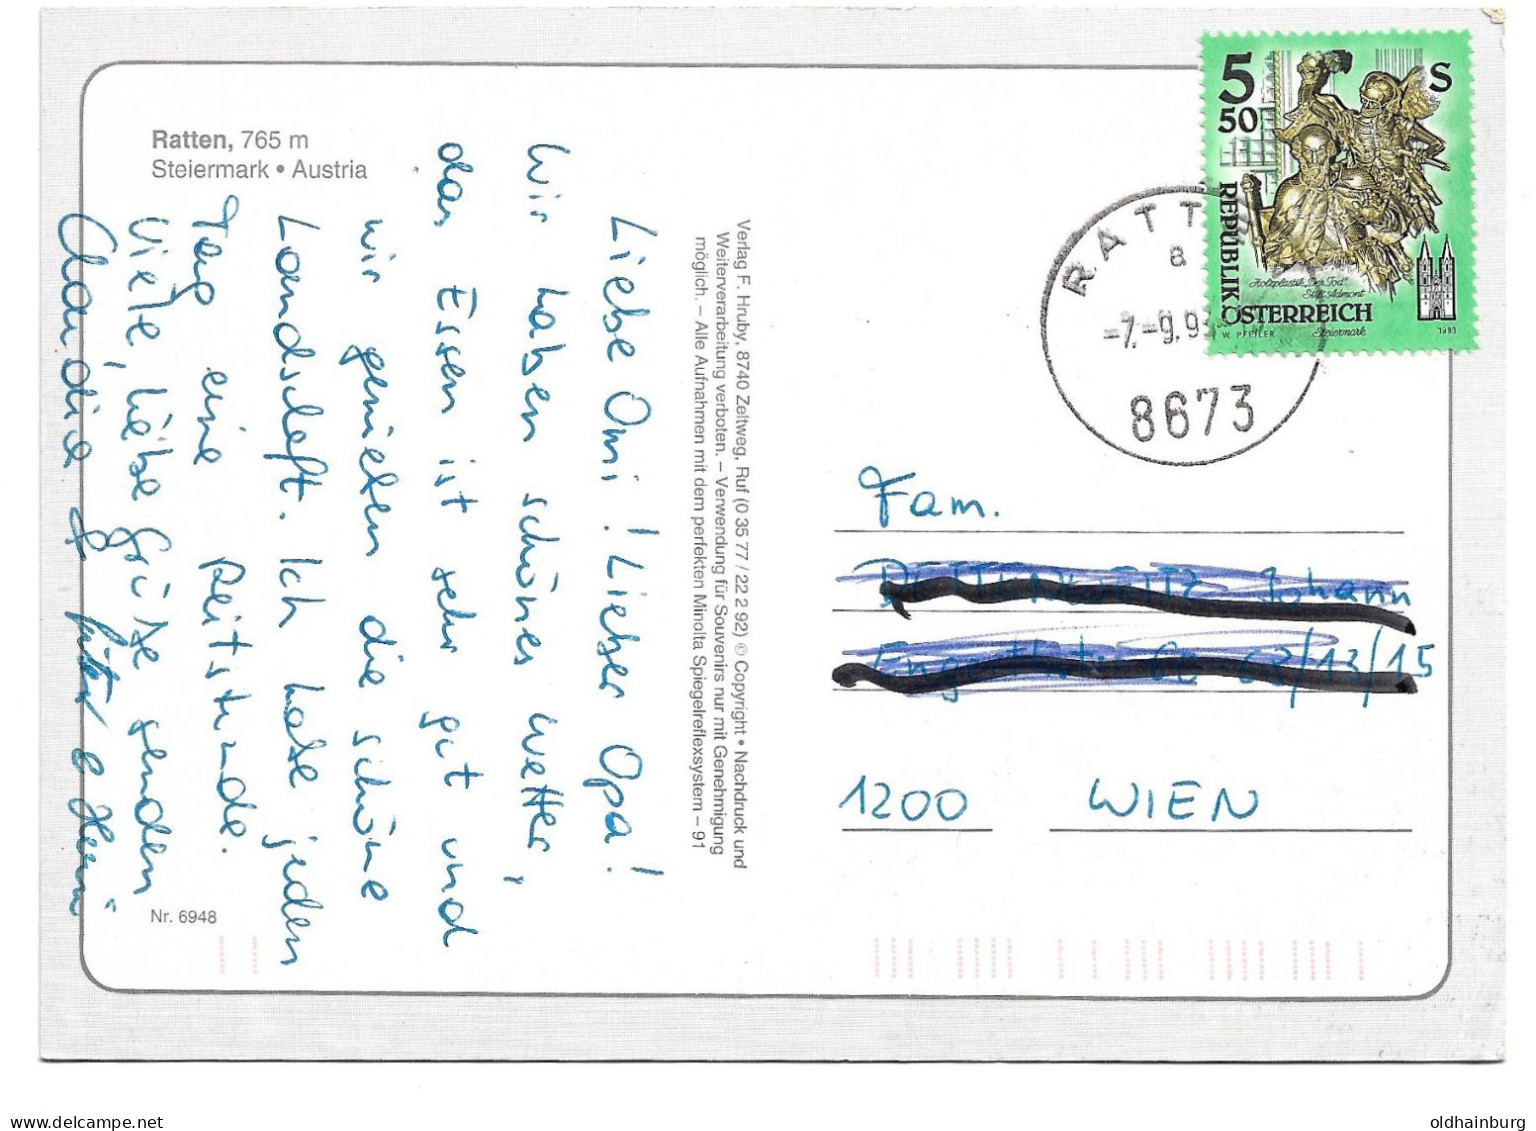 Ratten, 765 m
Steiermark • Austria
Liebe Omi! Lieber Opa!
Wir haben schönes Wetter,
das Essen ist sehr gut und
wir genießen die schöne
Landschaft. Ich habe jeden
Tag eine Reitstunde.
Viele, liebe Grüße senden
Claudia
Nr. 6948
Verlag F. Hruby, 8740 Zeltweg, Ruf (0 35 77 / 22 2 92) © Copyright • Nachdruck und
Weiterverarbeitung verboten. – Verwendung für Souvenirs nur mit Genehmigung
möglich. – Alle Aufnahmen mit dem perfekten Minolta Spiegelreflexsystem – 91
5 S
50
REPUBLIK
Holzplastik „Der Tod“
Stift Admont
ÖSTERREICH
W. PFEILER Steiermark 1993
RATT
a
-7.-9.9
8673
Fam.
Johann
/13/15
1200 WIEN
oldhainburg
www.delcampe.net